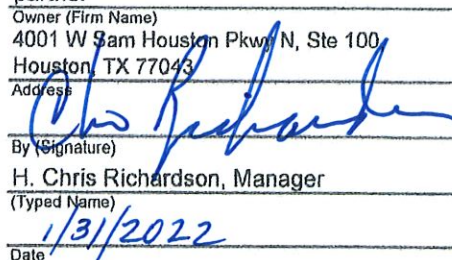 Owner (Firm Name)
4001 W Sam Houston Pkwy N, Ste 100
Houston, TX 77043
Address
Chris Richardson
By (Signature)
H. Chris Richardson, Manager
(Typed Name)
1/31/2022
Date